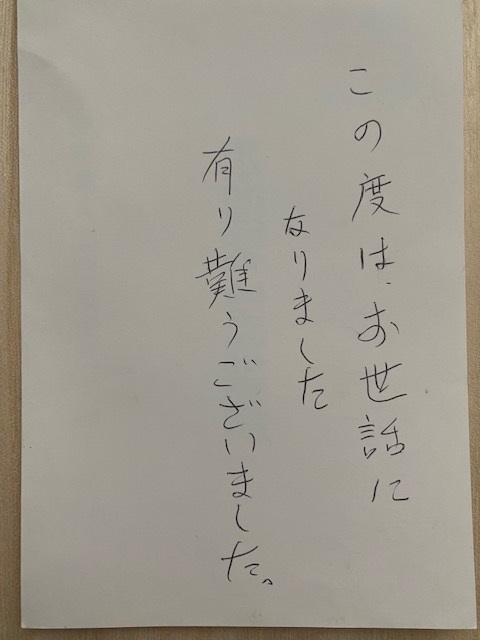 この度は、お世話に
なりました
有り難うございました。